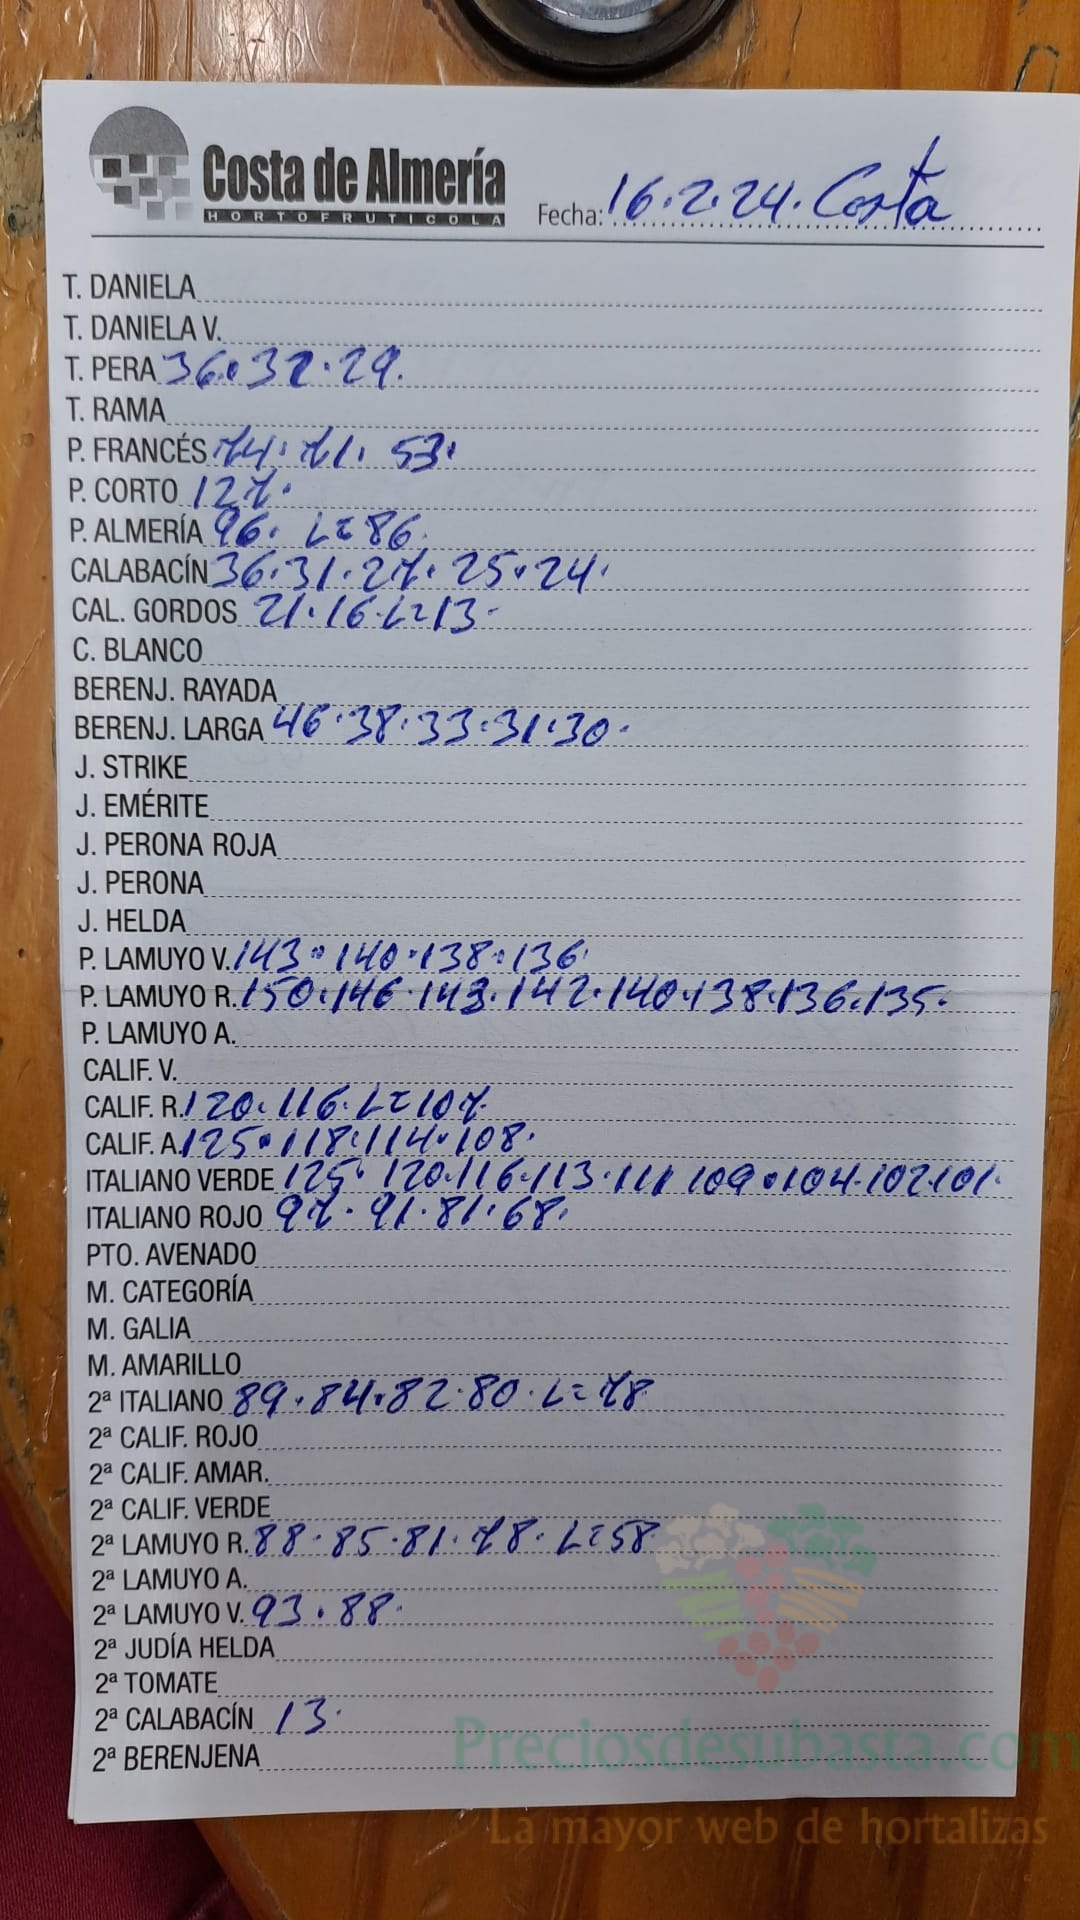 Costa de Almería
HORTOFRUTICOLA
Fecha: 16.2.24. Costa
T. DANIELA
T. DANIELA V.
T. PERA 36.32.29.
T. RAMA
P. FRANCÉS 74. 71. 53.
P. CORTO 127.
P. ALMERÍA 96. L=86.
CALABACÍN 36.31.27. 25.24.
CAL. GORDOS 21.16.L=13.
C. BLANCO
BERENJ. RAYADA
BERENJ. LARGA 46.38.33.31.30.
J. STRIKE
J. EMÉRITE
J. PERONA ROJA
J. PERONA
J. HELDA
P. LAMUYO V. 143.140.138.136.
P. LAMUYO R. 150.146.143.142.140.138.136.135.
P. LAMUYO A.
CALIF. V.
CALIF. R. 120.116.L=107.
CALIF. A. 125.118.114.108.
ITALIANO VERDE 125.120.116.113.111 109.104.102.101.
ITALIANO ROJO 97.91.81.68.
PTO. AVENADO
M. CATEGORÍA
M. GALIA
M. AMARILLO
2ª ITALIANO 89.84.82.80.L=78
2ª CALIF. ROJO
2ª CALIF. AMAR.
2ª CALIF. VERDE
2ª LAMUYO R. 88.85.81.78.L=58
2ª LAMUYO A.
2ª LAMUYO V. 93.88.
2ª JUDÍA HELDA
2ª TOMATE
2ª CALABACÍN 13.
2ª BERENJENA
Preciosdesubasta.com
La mayor web de hortalizas